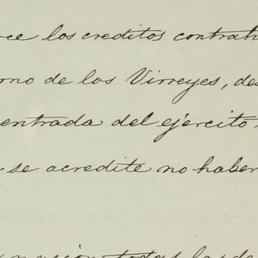 ce los creditos contrah
rno de los Virreyes, des
entrada del ejercito
se acredite no haber